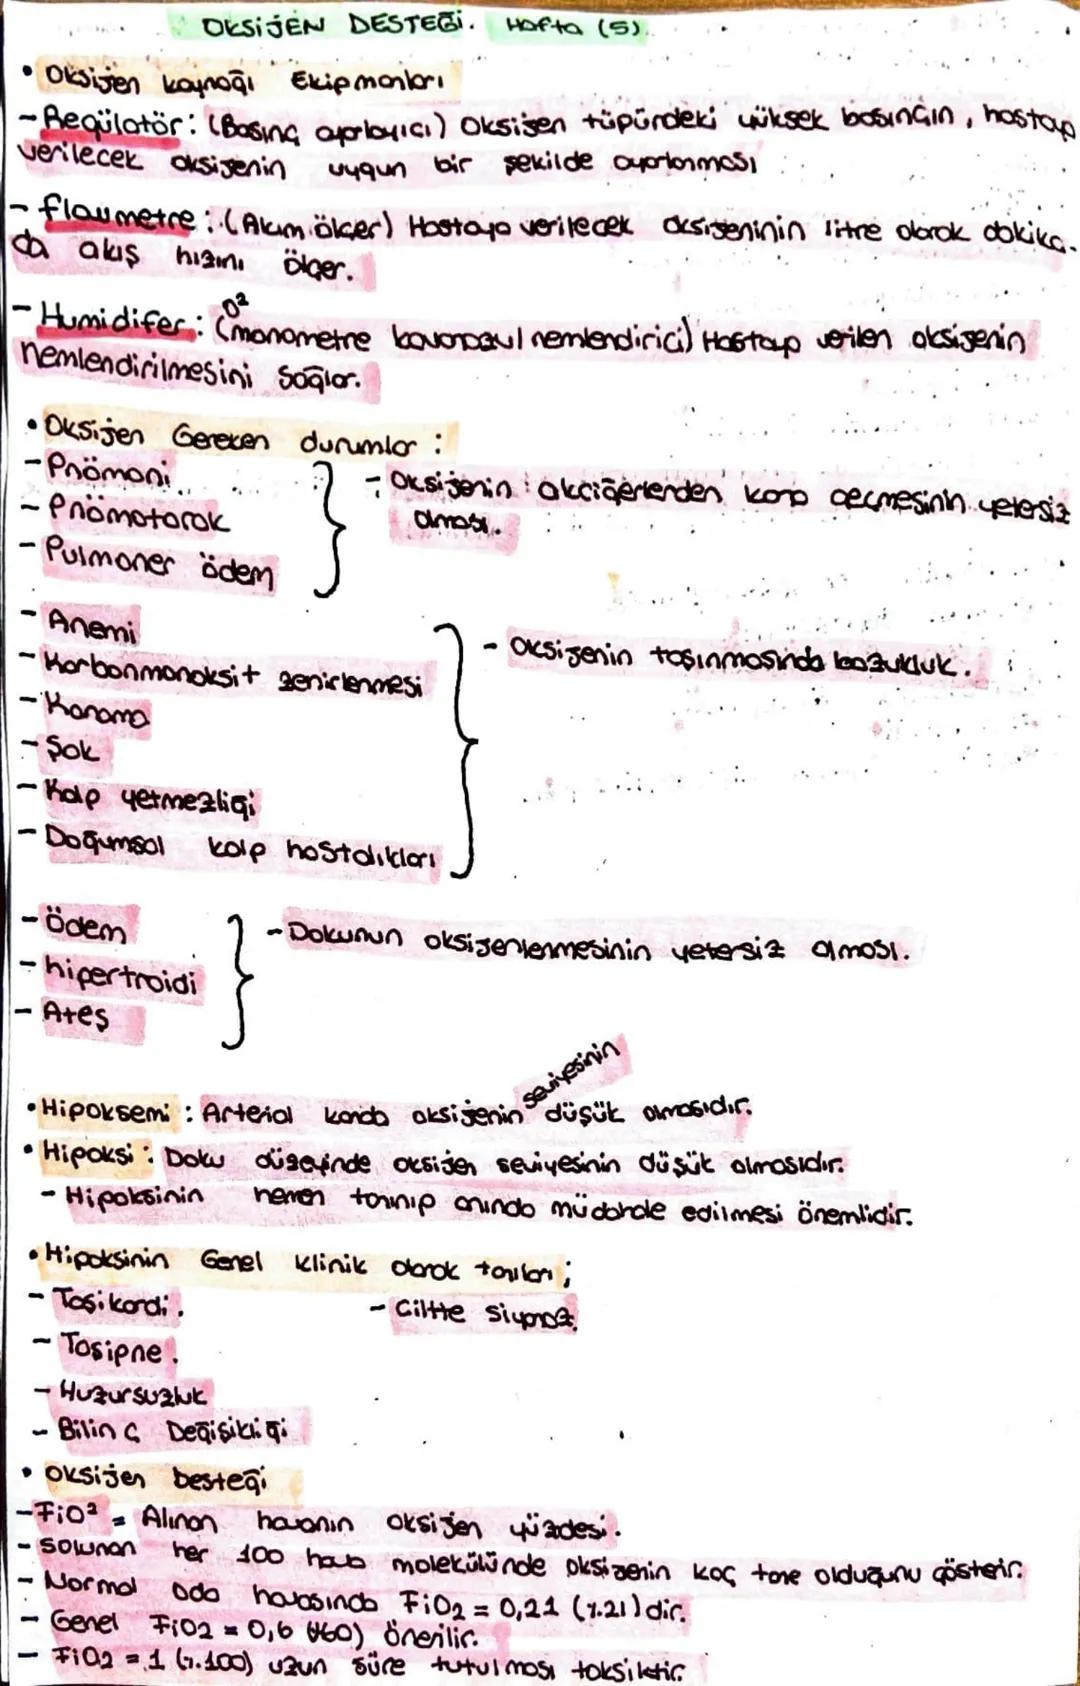 OKSİJEN DESTEĞİ. Hafta (5)
• Oksijen kaynağı Ekipmanları
- Regülatör: (Basınç ayarlayıcı) Oksijen tüpürdeki yüksek basıncın, hastaya
verilecek oksijenin uygun bir şekilde ayarlanması
- flowmetre: (Akım ölçer) Hastaya verilecek oksijeninin litre olarak dakika-
da akış hızını ölçer.
- Humidifer: O² (manometre kavanozul nemlendirici) Hastaya verilen oksijenin
nemlendirilmesini sağlar.
• Oksijen Gereken durumlar :
- Pnömoni
- Pnömotorak
- Pulmoner ödem
- Oksijenin akciğerlerden kana geçmesinin yetersiz
olması.
- Anemi
- Karbonmonoksit zenirlenmesi
- Kanama
- Şok
- Kalp yetmezliği
- Doğumsal kalp hastalıkları
- Oksijenin taşınmasında bozukluk.
- Ödem
- hipertroidi
- Ateş
- Dokunun oksijenlenmesinin yetersiz olması.
• Hipoksemi : Arterial kanda oksijenin seviyesinin düşük olmasıdır.
• Hipoksi : Doku düzeyinde oksijen seviyesinin düşük olmasıdır.
- Hipoksinin hemen tanınıp anında müdahale edilmesi önemlidir.
• Hipoksinin Genel klinik olarak tanıları ;
- Taşikardi.
- Ciltte siyanoz.
- Tasipne.
- Huzursuzluk
- Bilinç Değişikliği
• oksijen desteği
- FiO² = Alınan havanın oksijen yüzdesi.
- Solunan her 100 hava molekülünde oksijenin kaç tane olduğunu gösterir.
- Normal oda havasında FiO2 = 0,21 (%.21) dir.
- Genel FiO2 = 0,6 (%60) önerilir.
- FiO2 = 1 (%.100) uzun süre tutulması toksiktir.